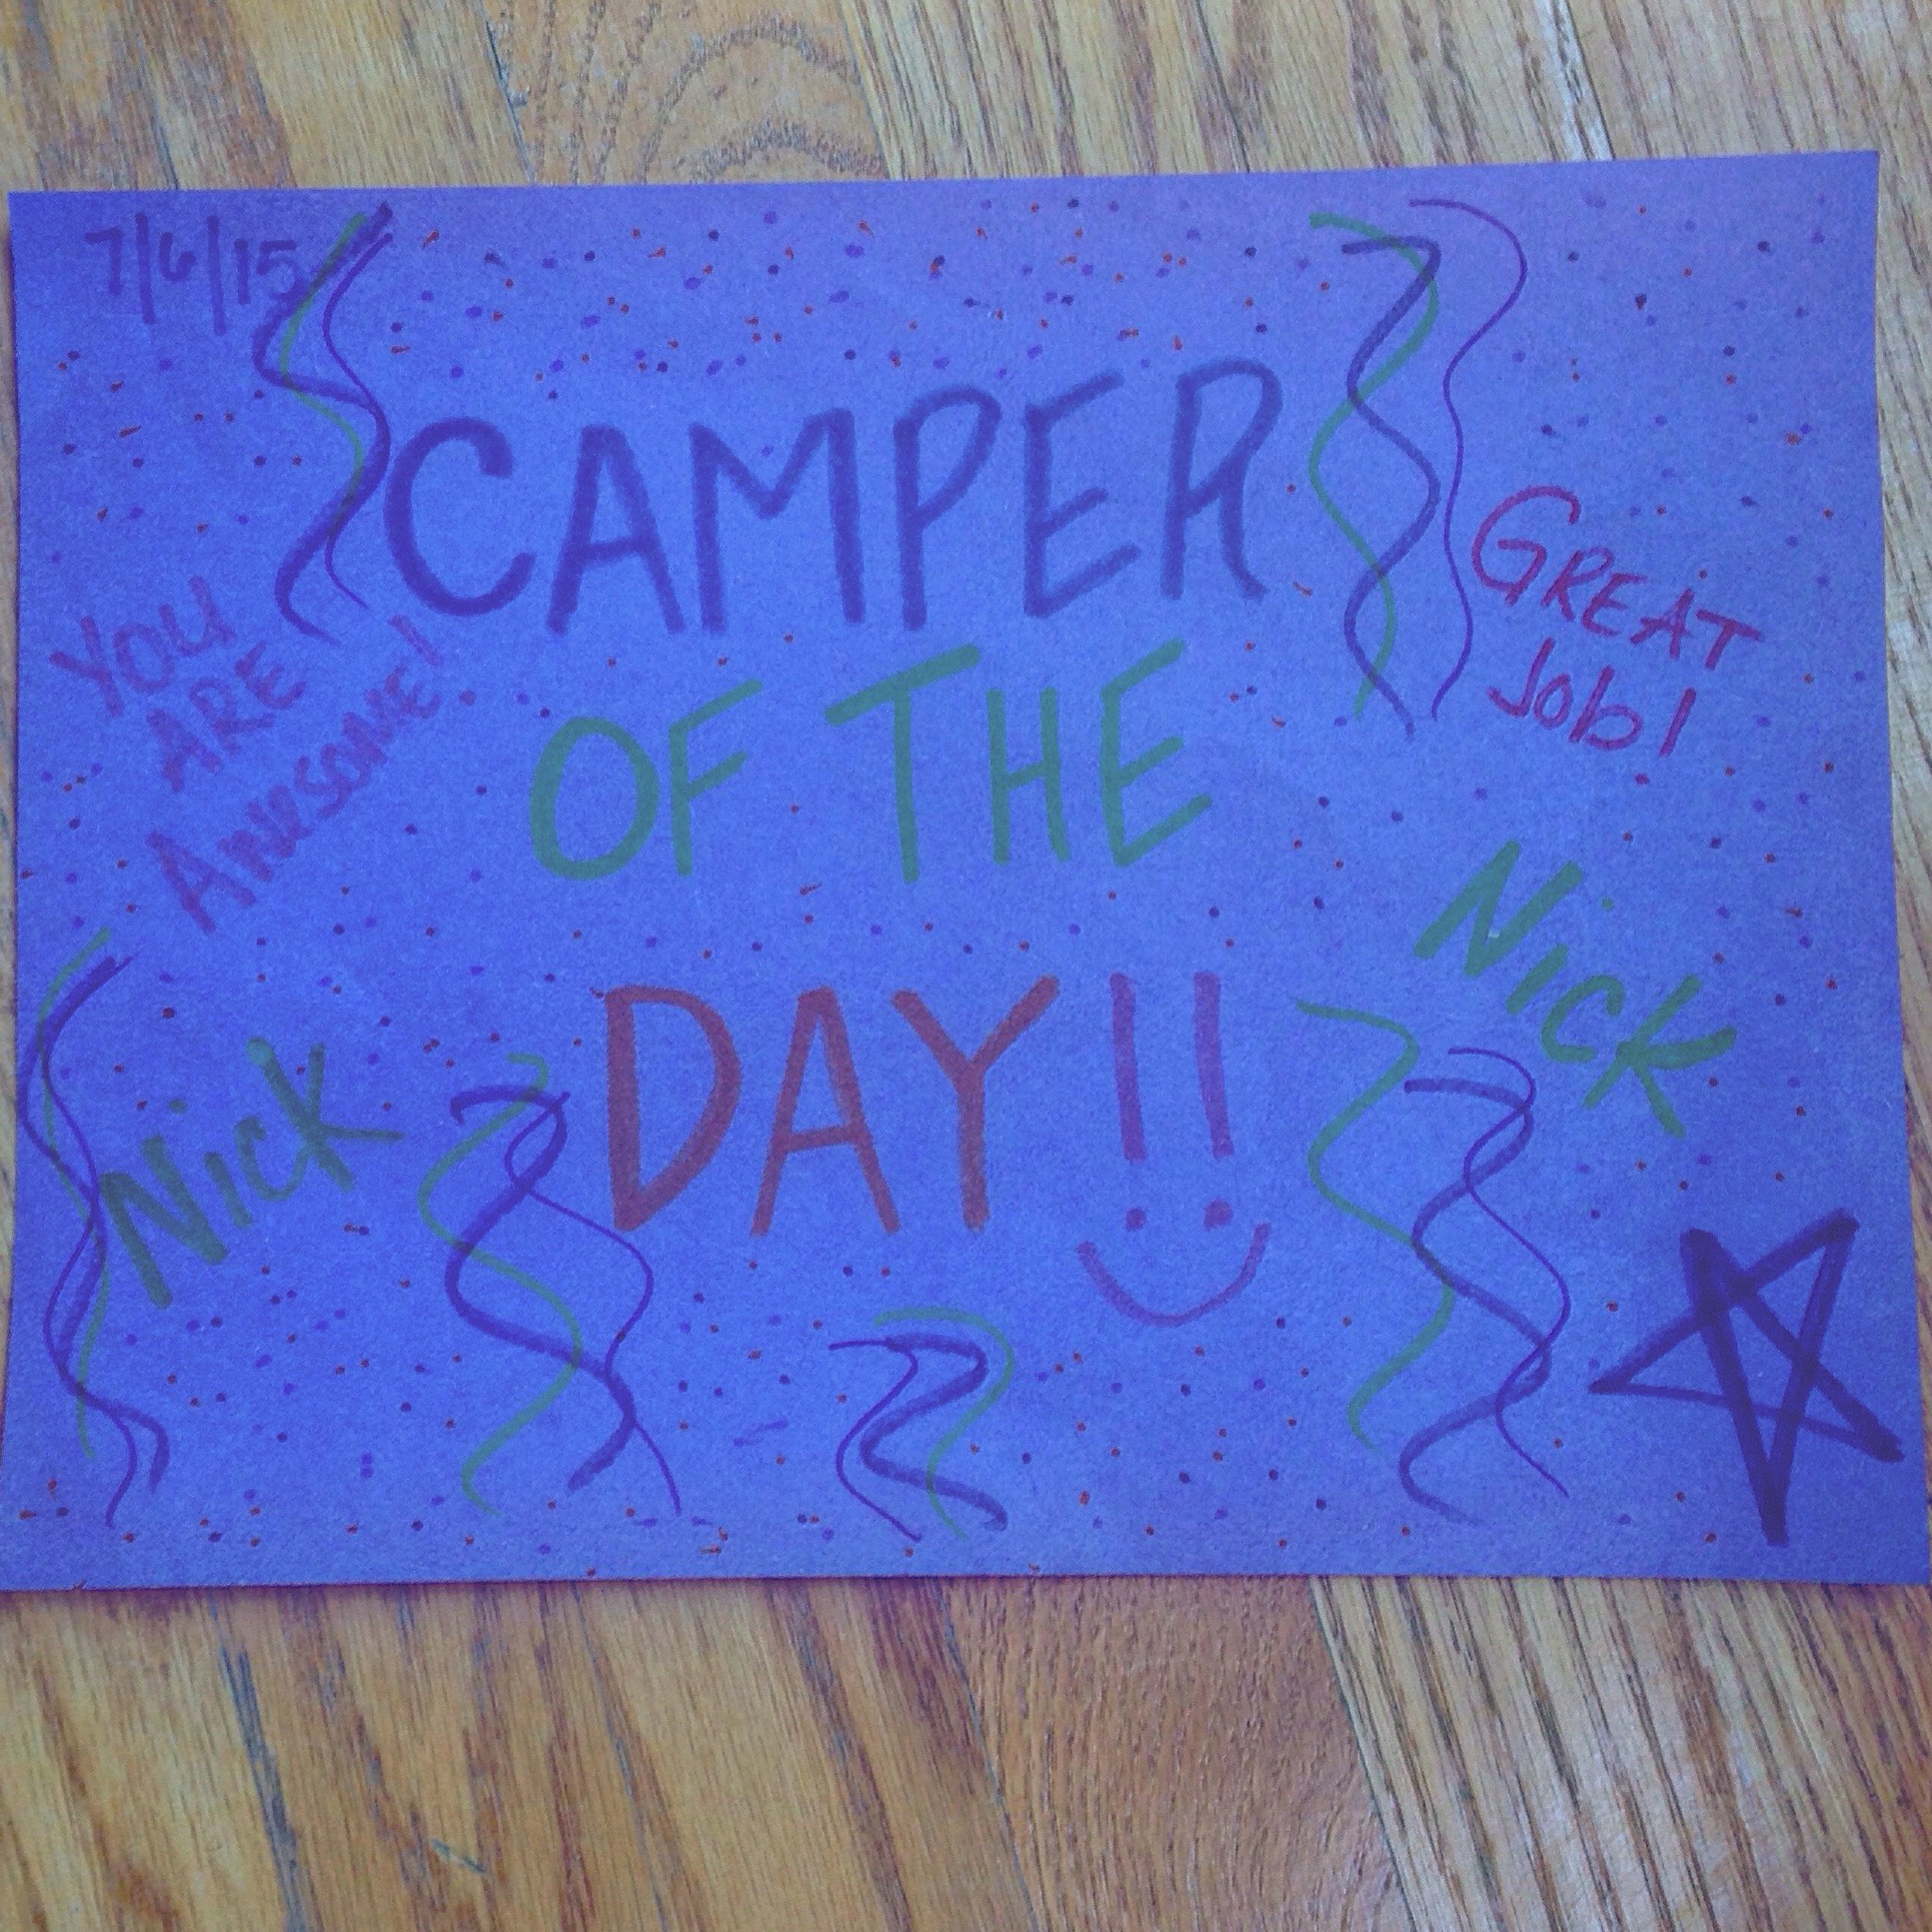 7/6/15
CAMPER
OF THE
DAY!!
YOU
ARE
AWESOME!
GREAT
Job!
Nick
Nick